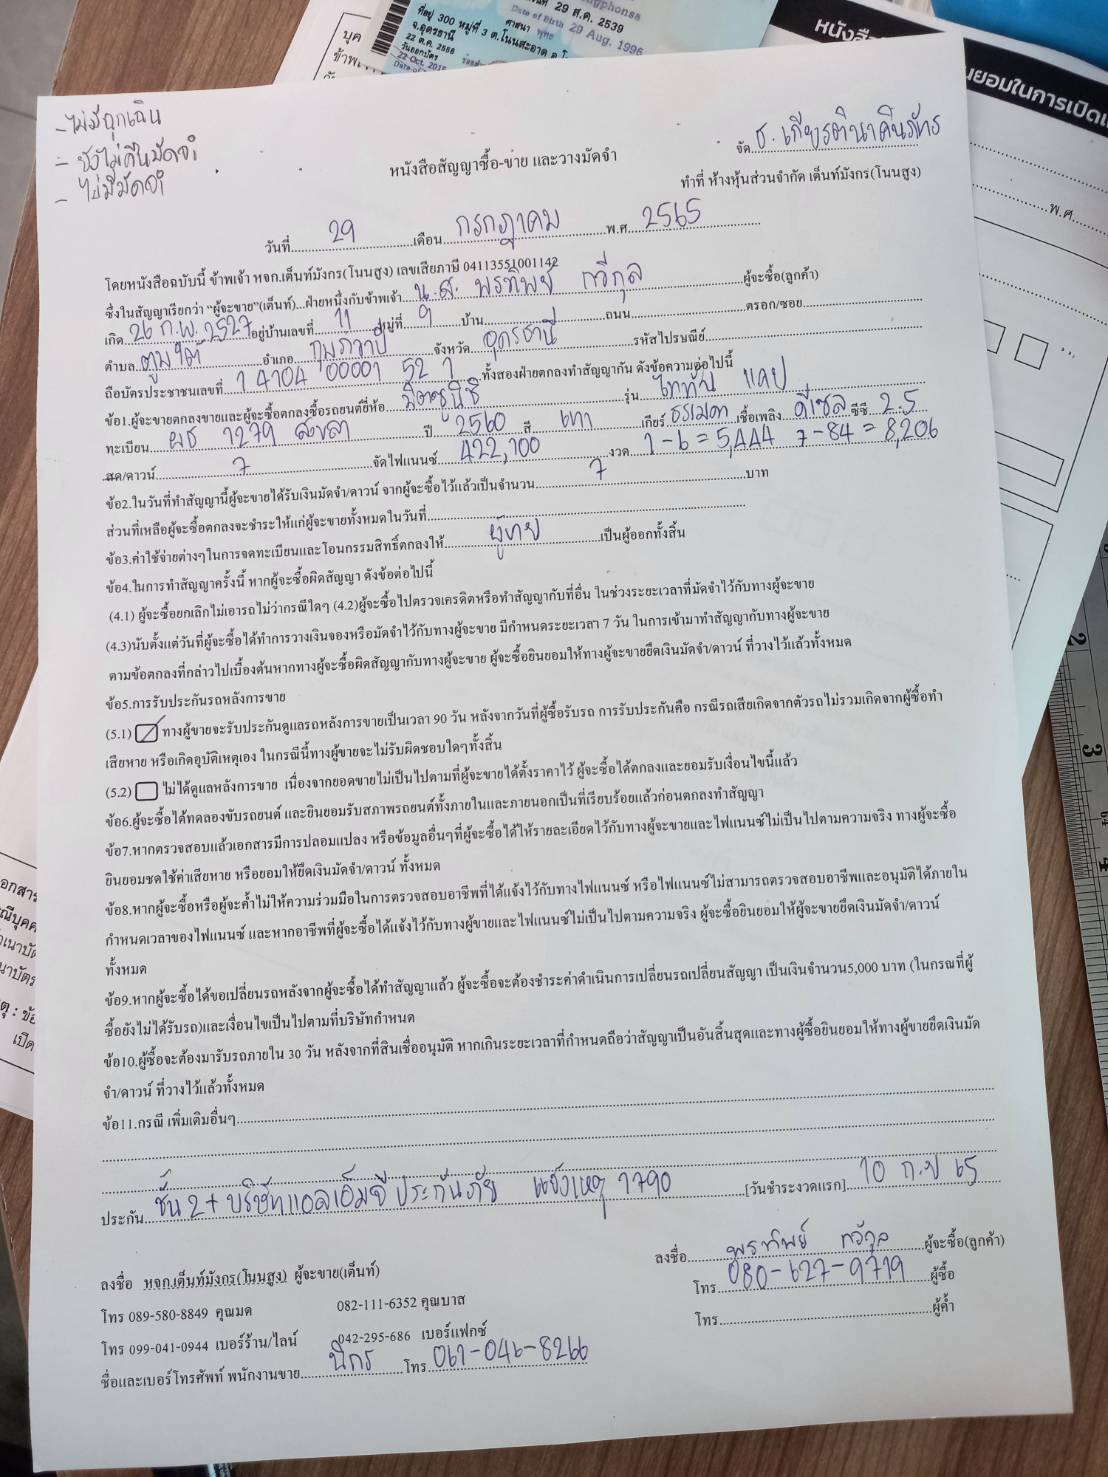 หมู่ที่ 3 ต.โนนสะอาด
จ.อุดรธานี
29 ส.ค. 2539
Date of Birth 29 Aug. 1996
ศาสนา พุทธ
วันออกบัตร
พ.ศ.
- ไม่มีฉุกเฉิน
- ยังไม่คืนมัดจำ
- ไม่มีมัดจำ
จัด ธ. เกียรตินาคินภัทร
หนังสือสัญญาซื้อ-ขาย และวางมัดจำ
ทำที่ ห้างหุ้นส่วนจำกัด เต็นท์มังกร(โนนสูง)
วันที่ 29 เดือน กรกฎาคม พ.ศ. 2565
โดยหนังสือฉบับนี้ ข้าพเจ้า หจก.เต็นท์มังกร(โนนสูง) เลขเสียภาษี 04113551001142
ซึ่งในสัญญาเรียกว่า "ผู้จะขาย"(เต็นท์)...ฝ่ายหนึ่งกับข้าพเจ้า น.ส. พรทิพย์ ทวีกุล ผู้จะซื้อ(ลูกค้า)
เกิด 26 ก.พ. 2527 อยู่บ้านเลขที่ 11 หมู่ที่ 9 บ้าน ถนน ตรอก/ซอย
ตำบล ตูมใต้ อำเภอ กุมภวาปี จังหวัด อุดรธานี รหัสไปรษณีย์
ถือบัตรประชาชนเลขที่ 1 4104 00001 52 1 ทั้งสองฝ่ายตกลงทำสัญญากัน ดังข้อความต่อไปนี้
ข้อ1.ผู้จะขายตกลงขายและผู้จะซื้อตกลงซื้อรถยนต์ยี่ห้อ มิตซูบิชิ รุ่น ไททัน แคป
ทะเบียน ผธ 1279 สงขลา ปี 2560 สี เทา เกียร์ ธรรมดา เชื้อเพลิง ดีเซล ซีซี 2.5
สด/ดาวน์ 7 จัดไฟแนนซ์ 422,100 งวด 1-6 = 5,444 7-84 = 8,206
ข้อ2.ในวันที่ทำสัญญานี้ผู้จะขายได้รับเงินมัดจำ/ดาวน์ จากผู้จะซื้อไว้แล้วเป็นจำนวน 7 บาท
ส่วนที่เหลือผู้จะซื้อตกลงจะชำระให้แก่ผู้จะขายทั้งหมดในวันที่
ข้อ3.ค่าใช้จ่ายต่างๆในการจดทะเบียนและโอนกรรมสิทธิ์ตกลงให้ ผู้ขาย เป็นผู้ออกทั้งสิ้น
ข้อ4.ในการทำสัญญาครั้งนี้ หากผู้จะซื้อผิดสัญญา ดังข้อต่อไปนี้
(4.1) ผู้จะซื้อยกเลิกไม่เอารถไม่ว่ากรณีใดๆ (4.2)ผู้จะซื้อไปตรวจเครดิตหรือทำสัญญากับที่อื่น ในช่วงระยะเวลาที่มัดจำไว้กับทางผู้จะขาย
(4.3)นับตั้งแต่วันที่ผู้จะซื้อได้ทำการวางเงินจองหรือมัดจำไว้กับทางผู้จะขาย มีกำหนดระยะเวลา 7 วัน ในการเข้ามาทำสัญญากับทางผู้จะขาย
ตามข้อตกลงที่กล่าวไปเบื้องต้นหากทางผู้จะซื้อผิดสัญญากับทางผู้จะขาย ผู้จะซื้อยินยอมให้ทางผู้จะขายยึดเงินมัดจำ/ดาวน์ ที่วางไว้แล้วทั้งหมด
ข้อ5.การรับประกันรถหลังการขาย
(5.1) ทางผู้ขายจะรับประกันดูแลรถหลังการขายเป็นเวลา 90 วัน หลังจากวันที่ผู้ซื้อรับรถ การรับประกันคือ กรณีรถเสียเกิดจากตัวรถไม่รวมเกิดจากผู้ซื้อทำ
เสียหาย หรือเกิดอุบัติเหตุเอง ในกรณีนี้ทางผู้ขายจะไม่รับผิดชอบใดๆทั้งสิ้น
(5.2) ไม่ได้ดูแลหลังการขาย เนื่องจากยอดขายไม่เป็นไปตามที่ผู้จะขายได้ตั้งราคาไว้ ผู้จะซื้อได้ตกลงและยอมรับเงื่อนไขนี้แล้ว
ข้อ6.ผู้จะซื้อได้ทดลองขับรถยนต์ และยินยอมรับสภาพรถยนต์ทั้งภายในและภายนอกเป็นที่เรียบร้อยแล้วก่อนตกลงทำสัญญา
ข้อ7.หากตรวจสอบแล้วเอกสารมีการปลอมแปลง หรือข้อมูลอื่นๆที่ผู้จะซื้อได้ให้รายละเอียดไว้กับทางผู้จะขายและไฟแนนซ์ไม่เป็นไปตามความจริง ทางผู้จะซื้อ
ยินยอมชดใช้ค่าเสียหาย หรือยอมให้ยึดเงินมัดจำ/ดาวน์ ทั้งหมด
ข้อ8.หากผู้จะซื้อหรือผู้จะค้ำไม่ให้ความร่วมมือในการตรวจสอบอาชีพที่ได้แจ้งไว้กับทางไฟแนนซ์ หรือไฟแนนซ์ไม่สามารถตรวจสอบอาชีพและอนุมัติได้ภายใน
กำหนดเวลาของไฟแนนซ์ และหากอาชีพที่ผู้จะซื้อได้แจ้งไว้กับทางผู้ขายและไฟแนนซ์ไม่เป็นไปตามความจริง ผู้จะซื้อยินยอมให้ผู้จะขายยึดเงินมัดจำ/ดาวน์
ทั้งหมด
ข้อ9.หากผู้จะซื้อได้ขอเปลี่ยนรถหลังจากผู้จะซื้อได้ทำสัญญาแล้ว ผู้จะซื้อจะต้องชำระค่าดำเนินการเปลี่ยนรถเปลี่ยนสัญญา เป็นเงินจำนวน5,000 บาท (ในกรณที่ผู้
ซื้อยังไม่ได้รับรถ)และเงื่อนไขเป็นไปตามที่บริษัทกำหนด
ข้อ10.ผู้ซื้อจะต้องมารับรถภายใน 30 วัน หลังจากที่สินเชื่ออนุมัติ หากเกินระยะเวลาที่กำหนดถือว่าสัญญาเป็นอันสิ้นสุดและทางผู้ซื้อยินยอมให้ทางผู้ขายยึดเงินมัด
จำ/ดาวน์ ที่วางไว้แล้วทั้งหมด
ข้อ11.กรณี เพิ่มเติมอื่นๆ
ประกัน ชั้น 2+ บริษัทแอลเอ็มจี ประกันภัย แจ้งเหตุ 1790 [วันชำระงวดแรก] 10 ก.ย 65
ลงชื่อ หจก.เต็นท์มังกร(โนนสูง) ผู้จะขาย(เต็นท์)
ลงชื่อ พรทิพย์ ทวีกุล ผู้จะซื้อ(ลูกค้า)
โทร 089-580-8849 คุณมด 082-111-6352 คุณบาส
โทร 080-627-9719 ผู้ซื้อ
โทร 099-041-0944 เบอร์ร้าน/ไลน์ 042-295-686 เบอร์แฟกซ์
โทร ผู้ค้ำ
ชื่อและเบอร์โทรศัพท์ พนักงานขาย นิกร โทร 061-046-8266
2
3
4